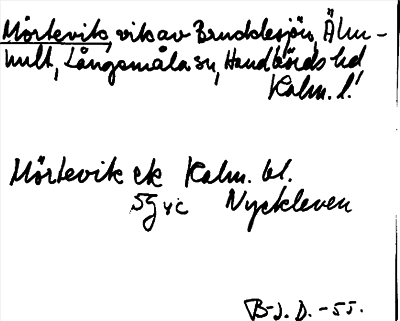 Mörtevik, vik av Bruddesjön, Älm-
hult, Långemåla sn, Handbörds hd
Kalm. l.
Mörtevik ek Kalm. bl.
5G yc Nyckleven
B-J. D. -55.